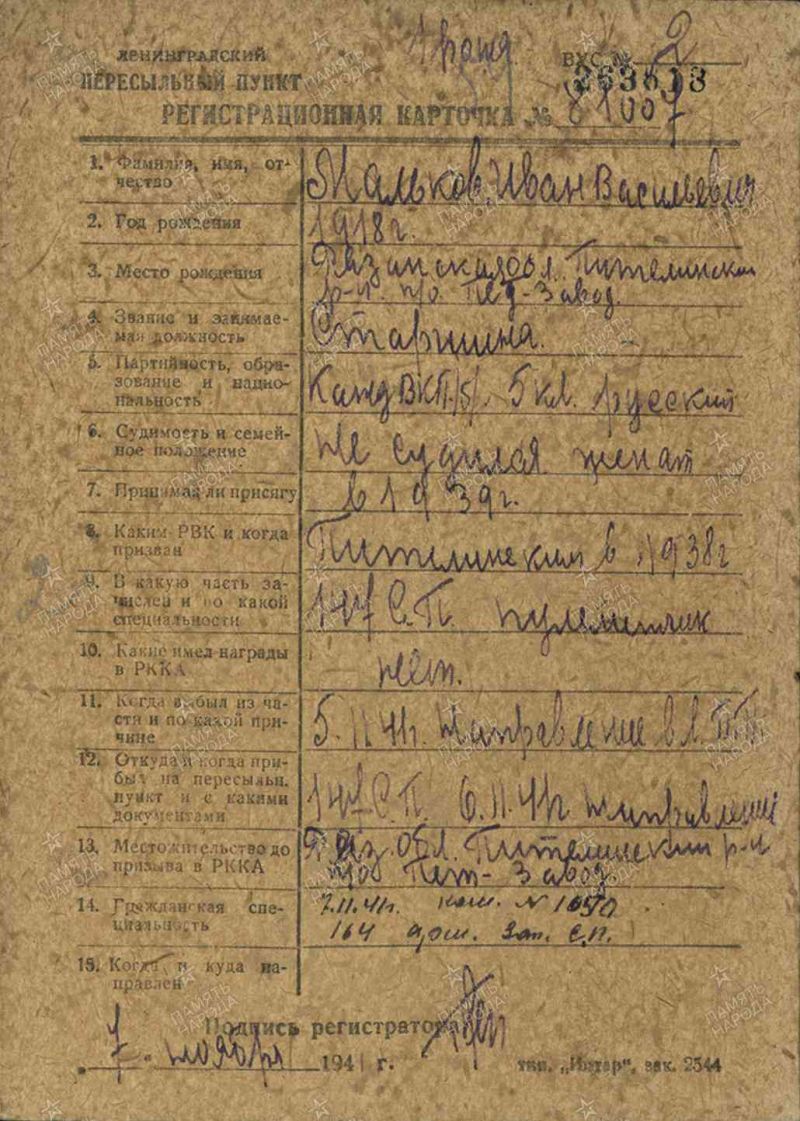 ЛЕНИНГРАДСКИЙ
ПЕРЕСЫЛЬНЫЙ ПУНКТ
ВХС. № 2
263613
РЕГИСТРАЦИОННАЯ КАРТОЧКА № 81007
1. Фамилия, имя, от-
чество
Мальков Иван Васильевич
2. Год рождения
1918 г.
3. Место рождения
Рязанская обл. Пителинский
р-н. п/о Пет-Завод.
4. Звание и занимае-
мая должность
Старшина.
5. Партийность, обра-
зование и нацио-
нальность
Канд ВКП/б/. 5 кл. русский
6. Судимость и семей-
ное положение
Не судился женат
7. Принимал ли присягу
в 1939 г.
8. Каким РВК и когда
призван
Пителинским в 1938 г
9. В какую часть за-
числен и по какой
специальности
147 С.П. пулеметчик
10. Какие имел награды
в РККА
нет.
11. Когда выбыл из ча-
сти и по какой при-
чине
5.11.41г. Направление в Л.П.П.
12. Откуда и когда при-
был на пересыльн.
пункт и с какими
документами
147 С.П. 6.11.41г направление
13. Местожительство до
призыва в РККА
Ряз. Обл. Пителинский р-н
п/о Пет-Завод.
14. Гражданская спе-
циальность
7.11.41г. ком. № 1650
164 арт. Зап. С.П.
15. Когда и куда на-
правлен
Подпись регистратора
7. ноября 1941 г.
тип. „Янтарь“, зак. 2544